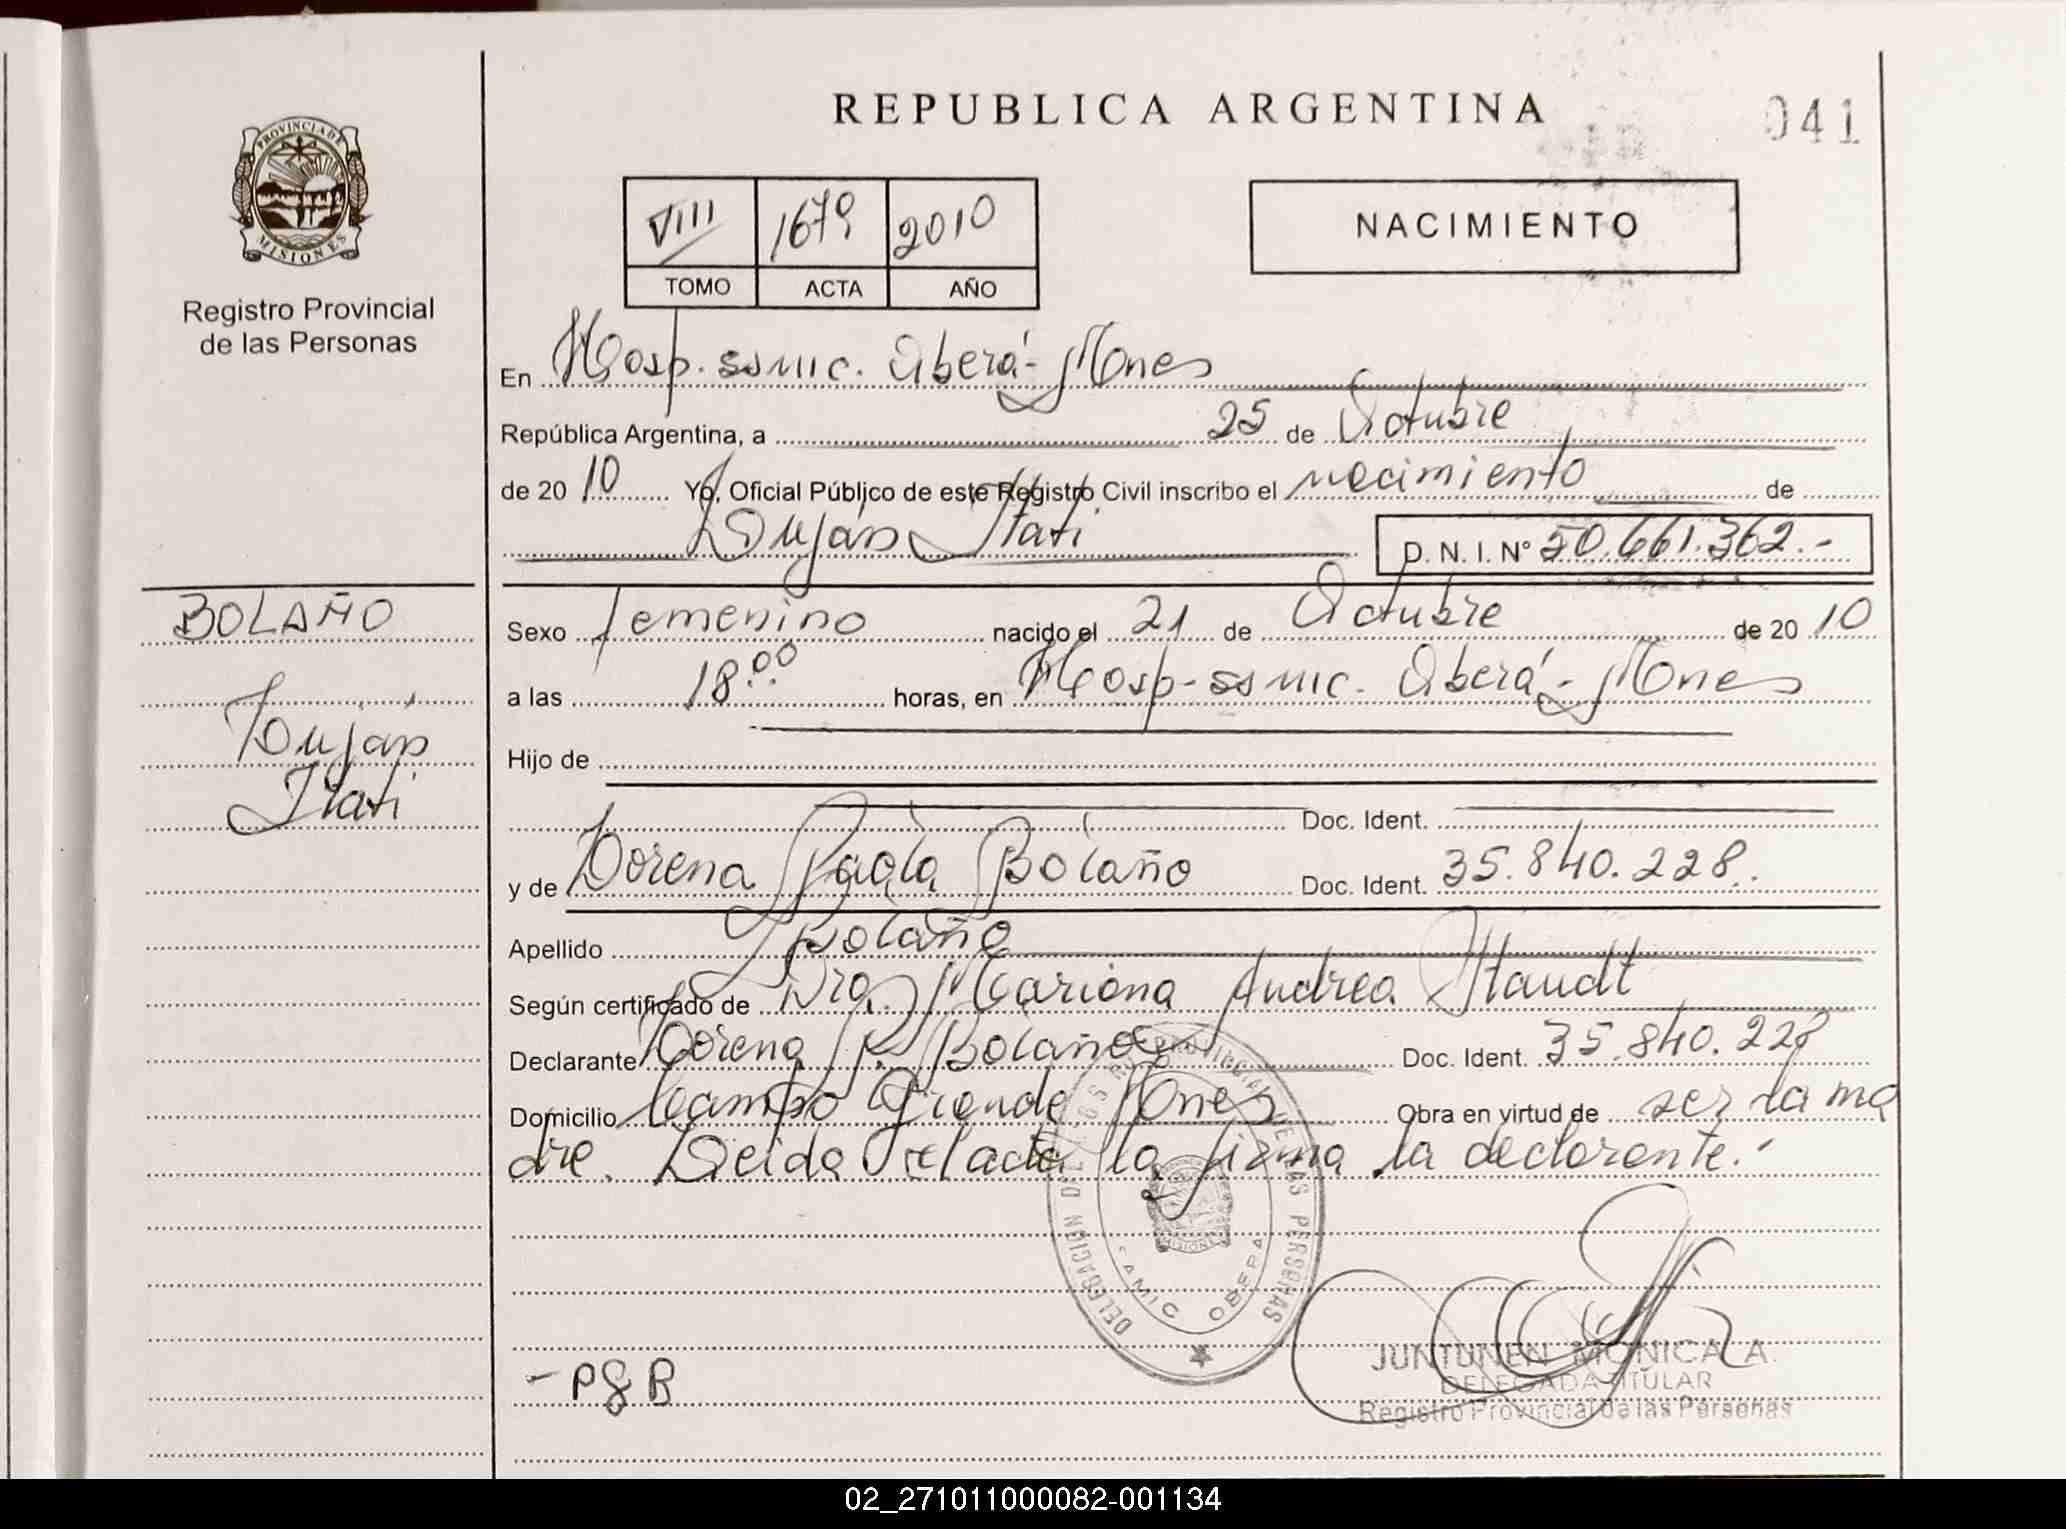 REPUBLICA ARGENTINA
041
PROVINCIA DE
MISIONES
Registro Provincial
de las Personas
VIII 1679 2010
TOMO ACTA AÑO
NACIMIENTO
En Hosp. ssmic. Oberá - Mnes
República Argentina, a 25 de Octubre
de 2010 Yo, Oficial Público de este Registro Civil inscribo el nacimiento de
Luján Itatí
D. N. I. N° 50.661.362.-
BOLAÑO
Luján
Itatí
Sexo femenino nacido el 21 de Octubre de 2010
a las 18:00 horas, en Hosp - ssmic. Oberá - Mnes
Hijo de
Doc. Ident.
y de Lorena Paola Bolaño Doc. Ident. 35.840.228.
Apellido Bolaño
Según certificado de Dra. Mariana Andrea Staudt
Declarante Lorena P. Bolaño Doc. Ident. 35.840.228
Domicilio Campo Grande Mnes Obra en virtud de ser la ma
dre. Leida el acta la firma la declarante.-
DELEGACION DEL REGISTRO PROVINCIAL DE LAS PERSONAS
SAMIC OBERA
MISIONES
JUNTUNEN MONICA A.
DELEGADA TITULAR
Registro Provincial de las Personas
02_271011000082-001134